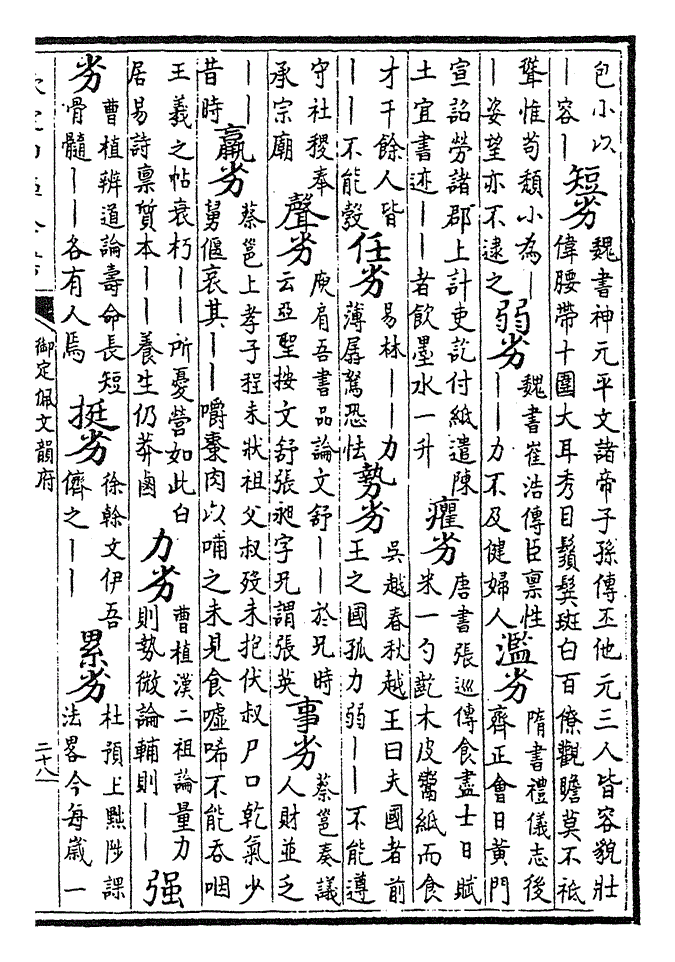 包小以——容—短劣魏書神元平文諸帝子孫傳丕他元三人皆容貌壯偉腰帶十圍大耳秀目鬚鬢斑白百僚觀瞻莫不祗
聳惟苟頹小為——姿望亦不逮之弱劣魏書崔浩傳臣禀性——力不及健婦人濫劣隋書禮儀志後齊正會日黃門
宣詔勞諸郡上計吏訖付紙遣陳土宜書迹——者飲墨水一升癯劣唐書張巡傳食盡士日賦米一勺齕木皮鬻紙而食
才干餘人皆——不能彀任劣易林——力薄孱駑恐怯勢劣吳越春秋越王曰夫國者前王之國孤力弱——不能遵
守社稷奉承宗廟聲劣庾肩吾書品論文舒——於兄時云亞聖按文舒張昶字兄謂張英事劣蔡邕奏議人財並乏
——昔時羸劣蔡邕上孝子程未狀祖父叔歿未抱伏叔尸口乾氣少舅偃哀其——嚼棗肉以哺之未見食噓唏不能吞咽
王羲之帖衰朽——所憂營如此白居易詩禀質本——養生仍莽鹵力劣曹植漢二祖論量力則勢微論輔則——强
劣曹植辨道論壽命長短骨髓——各有人焉挺劣徐幹文伊吾儕之——累劣杜預上黜陟課法畧今每歲一
御定佩文韻府
二十八